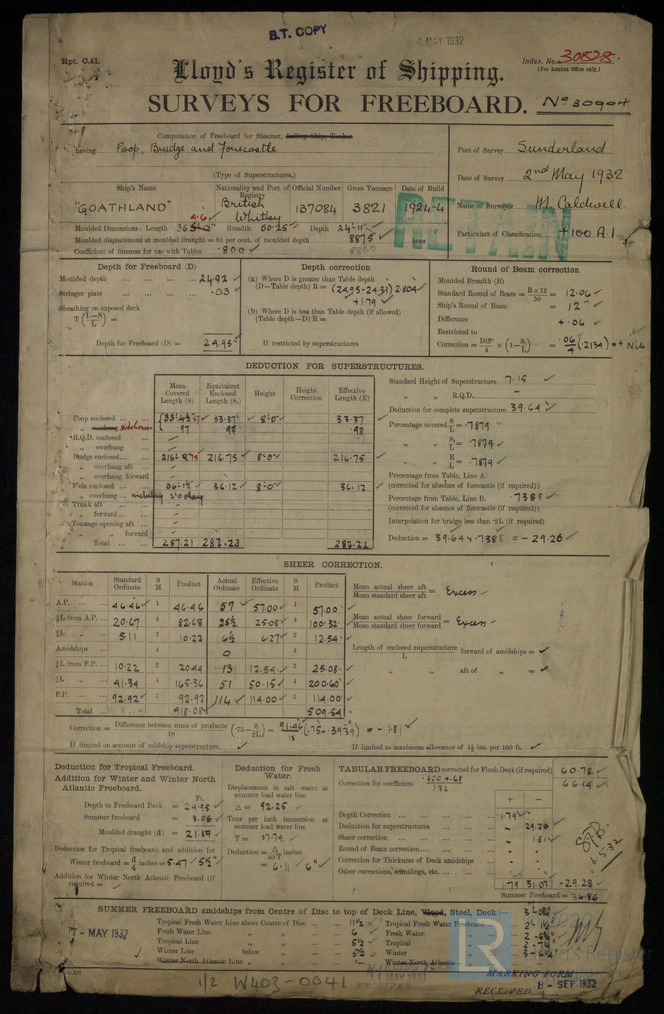 B.T. COPY
MAY 1932
Rpt. C.11.
Index. No. 30828.
(For London Office only.)
Lloyd's Register of Shipping.
SURVEYS FOR FREEBOARD. No 30904
Computation of Freeboard for Steamer, Sailing Ship, Tanker
having Poop, Bridge and Forecastle
(Type of Superstructures.)
Port of Survey Sunderland
Date of Survey 2nd May 1932
Name of Surveyor M. Caldwell
Particulars of Classification +100 A.1
RETAIN
Ship's Name
Nationality and Port of Registry
Official Number
Gross Tonnage
Date of Build
"GOATHLAND"
British
Whitby
137084
3821
1924-4
Moulded Dimensions: Length 365 Breadth 50.25 Depth 24-11
Moulded displacement at moulded draught = 85 per cent. of moulded depth 8875 tons
Coefficient of fineness for use with Tables .800
Depth for Freeboard (D)
Moulded depth 24.92
Stringer plate .03
Sheathing on exposed deck
T (L-S/L) =
Depth for Freeboard (D) = 24.95
Depth correction
(a) Where D is greater than Table depth
(D—Table depth) R = (24.95-24.31) 2.804
+1.79
(b) Where D is less than Table depth (if allowed)
(Table depth—D) R =
If restricted by superstructures
Round of Beam correction
Moulded Breadth (B)
Standard Round of Beam = B × 12/50 = 12.06
Ship's Round of Beam = 12"
Difference +.06
Restricted to
Correction = Diff/4 × (1 - S1/L) = .06/4 (.2134) = + Nil
DEDUCTION FOR SUPERSTRUCTURES.
Mean Covered Length (S)
Equivalent Enclosed Length (S1)
Height
Height Correction
Effective Length (E)
Poop enclosed 33.37 8'.0" 33.37
R.Q.D. enclosed
" overhang
Bridge enclosed 216.75 8'.0" 216.75
" overhang aft
" overhang forward
F'cle enclosed 36.12 36.12 8'.0" 36.12
" overhang
Trunk aft
" forward
Tonnage opening aft
" " forward
Total 287.21 287.22 287.22
Standard Height of Superstructure 7.15
" " R.Q.D. -
Deduction for complete superstructure 39.64
Percentage covered S/L = .7879
" " S1/L = .7879
" " E/L = .7879
Percentage from Table, Line A.
(corrected for absence of forecastle (if required))
Percentage from Table, Line B. .7385
(corrected for absence of forecastle (if required))
Interpolation for bridge less than .2L (if required)
Deduction = 39.64 x .7385 = - 29.28
SHEER CORRECTION.
Station
Standard Ordinate
S M
Product
Actual Ordinate
Effective Ordinate
S M
Product
A.P. 46.46 1 46.46 57 57.00 1 57.00
⅙L from A.P. 20.67 4 82.68 25½ 25.08 4 100.32
⅓L " 5.11 2 10.22 6½ 6.27 2 12.54
Amidships 4 0 4
⅓L from F.P. 10.22 2 20.44 13 12.54 2 25.08
⅙L " 41.34 4 165.36 51 50.15 4 200.60
F.P. 92.92 1 92.92 114 114.00 1 114.00
Total 418.08 509.54
Mean actual sheer aft / Mean standard sheer aft = Excess
Mean actual sheer forward / Mean standard sheer forward = Excess
Length of enclosed superstructure / L forward of amidships =
" " aft of " =
Correction = Difference between sums of products/18 (.75 - S/2L) = 91.46/18 (.75-.3939) = - 1.81
If limited on account of midship superstructure.
If limited to maximum allowance of 1½ ins. per 100 ft.
Deduction for Tropical Freeboard.
Addition for Winter and Winter North Atlantic Freeboard.
Ft.
Depth to Freeboard Deck = 24.95
Summer freeboard = 3.06
Moulded draught (d) = 21.89
Deduction for Tropical freeboard and addition for
Winter freeboard = d/4 inches = 5.47 5½"
Addition for Winter North Atlantic Freeboard (if required) =
Deduction for Fresh Water.
Displacement in salt water at summer load water line
Δ = 9225
Tons per inch immersion at summer load water line
T = 37.74
Deduction = Δ/40T inches
= 6.11 6"
TABULAR FREEBOARD corrected for Flush Deck (if required) 60.78
Correction for coefficient .800 + .68/1.36 66.14
+ -
Depth Correction 1.79 -
Deduction for superstructures - 29.26
Sheer correction - 1.81
Round of Beam correction - -
Correction for Thickness of Deck amidships
Other corrections, scantlings, etc.
1.79 31.07 -29.28
Summer Freeboard = 36.86
SUMMER FREEBOARD amidships from Centre of Disc to top of Deck Line, Wood, Steel, Deck :—
Tropical Fresh Water Line above Centre of Disc 11½
Fresh Water Line " " 6
Tropical Line " " 5½
Winter Line below " " 5½
Winter North Atlantic Line " "
Tropical Fresh Water Freeboard
Fresh Water "
Tropical "
Winter "
Winter North Atlantic "
7-MAY 1932
MAY 1932
MARKING FORM
RECEIVED 8-SEP 1932
1/2 W403-0041
LR
Lloyd's Register